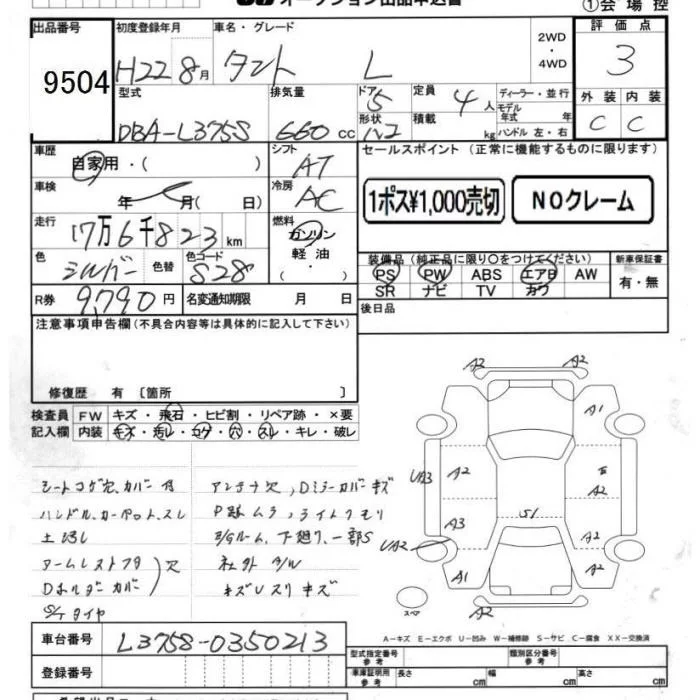 オークション出品申込書 ①会場控
出品番号 初度登録年月 車名・グレード 2WD・4WD 評価点
9504 H22 8月 タント L 3
型式 排気量 ドア 形状 定員 積載 ディーラー・並行 モデル年式 年 外装 内装
DBA-L375S 660cc 5 4人 kg ハンドル 左・右 C C
車歴 自家用・( ) シフト AT セールスポイント (正常に機能するものに限ります)
車検 年 月( 日) 冷房 AC 1ポス¥1,000売切 NOクレーム
走行 17万6千823km 燃料 ガソリン 軽油 ・( )
色 シルバー 色替 色コード S28 装備品(純正品に限り○をつけてください) 新車保証書
PS PW ABS エアB AW 有・無
SR ナビ TV カワ
R券 9,790円 名変通知期限 月 日 後日品
注意事項申告欄(不具合内容等は具体的に記入して下さい)
修復歴 有 〔箇所 〕
検査員 FW キズ・飛石・ヒビ割・リペア跡・×要
記入欄 内装 キズ・汚レ・コゲ・穴・スレ・キレ・破レ
シートコゲ穴、カバー付 アンテナ欠、Dミラーカバーキズ
ハンドル、カーペット、スレ P録ムラ、ライトクモリ
土汚レ E/Gルーム、下廻り、一部S
アームレストフタ 欠 社外アルル
Dホルダーカバー キズUスリキズ
S/Tタイヤ
A2 A2
A1
UA3 A2 E A2
A3 S1
UA2 A2
A1 A2
スペア A2
A−キズ E−エクボ U−凹み W−補修跡 S−サビ C−腐食 XX−交換済
車台番号 L375S-0350213 型式指定番号 参考 類別区分番号 参考
登録番号 車庫証明用 参考 長さ cm 幅 cm 高さ cm